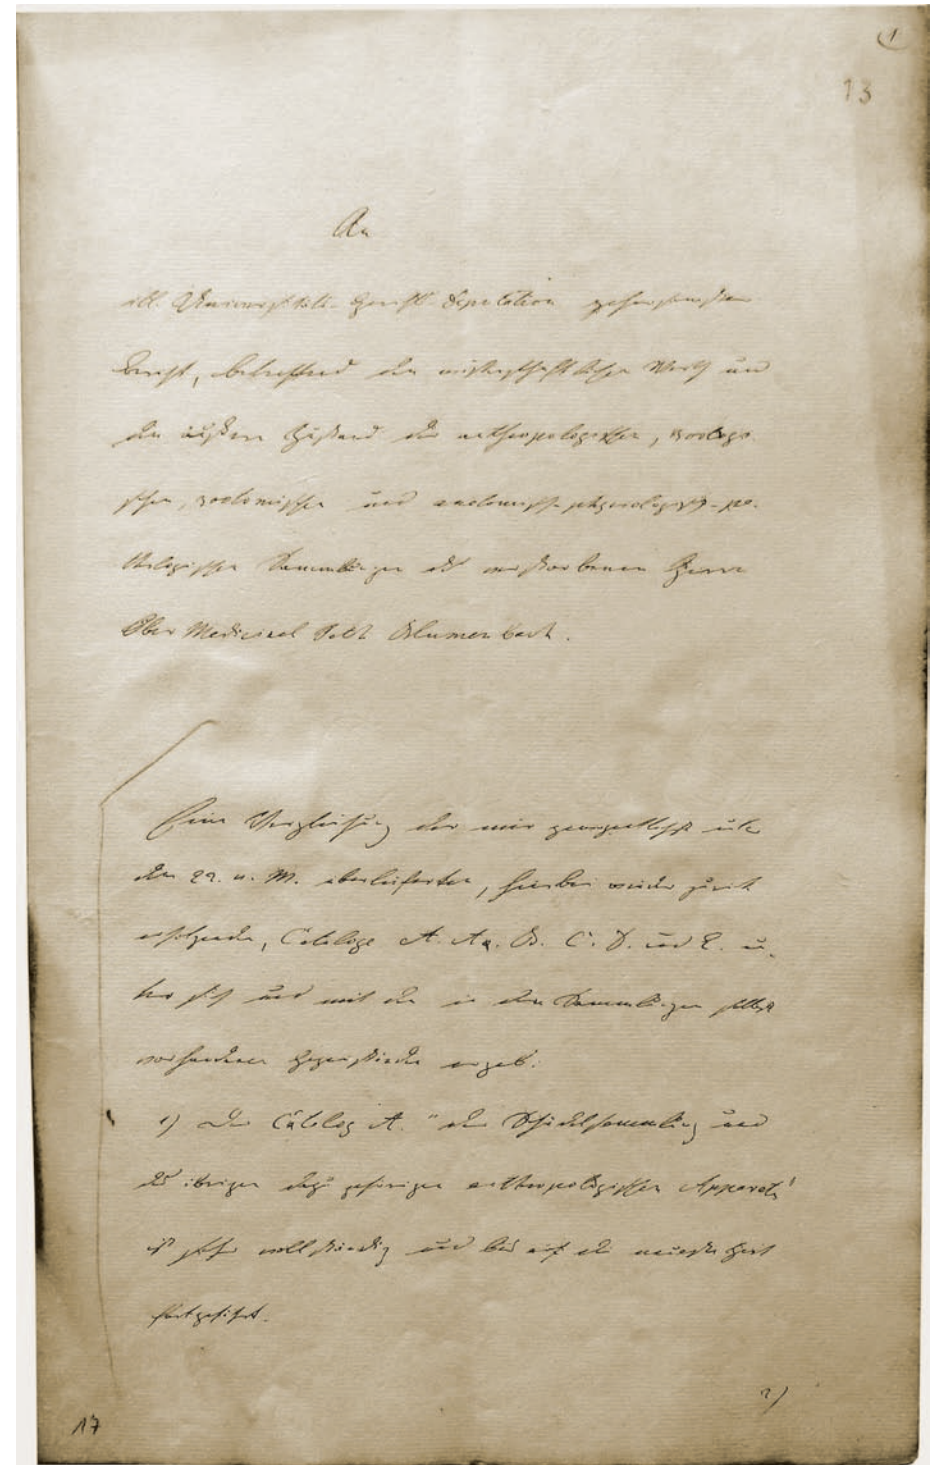 1
13
An
Universitäts-Gerichts-Deputation gehorsamster
Bericht, betreffend den wissenschaftlichen Werth und
den äußern Zustand der anthropologischen, zoologi-
schen, zootomischen und anatomisch-physiologisch-pa-
thologischen Sammlungen des verstorbenen Herrn
Ober Medicinal Rath Blumenbach.
Eine Vergleichung der mir hochgeneigtest unter
den 22. v. M. überlieferten, hierbei wieder zurück
erfolgenden, Cataloge A. Aa. B. C. D. und E. un-
ter sich und mit den in den Sammlungen selbst
vorhandenen Gegenständen ergab:
1) der Catalog A. "der Schädelsammlung und
des übrigen dazu gehörigen anthropologischen Apparats"
ist sehr vollständig und bis auf die neueste Zeit
fortgeführt.
2)
17